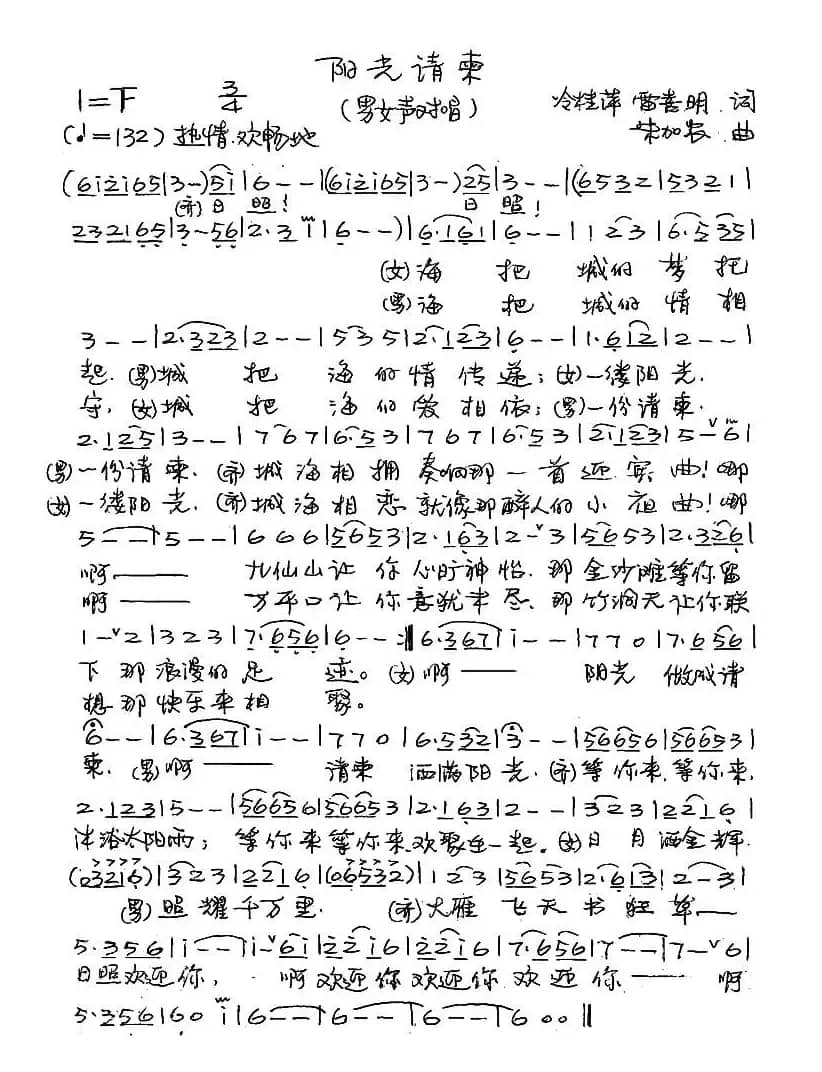 阳光请柬
1=F 3/4
(男女声对唱)
冷桂萍 雷喜明 词
(♩=132) 热情.欢畅地
朱加农 曲
(6i2i65|3—)5i|6--|(6i2i65|3—)25|3--|(65532|53211
(齐)日 照! 日 照!
232165|3—56|2·3 i|6--)|6·161|6--|123|6·535|
(女)海 把 城的 梦 托
(男)海 把 城的 情 相
3--|2·323|2--|535|2·123|6--|1·612|2--|
起.(男)城 把 海的情 传递;(女)一缕阳光.
守,(女)城 把 海的爱 相依;(男)一份请柬.
2·125|3--|767|6·53|767|6·53|2·123|5—6|
(男)一份请柬.(齐)城海相拥 奏响那一首迎宾曲!哪
(女)一缕阳光.(齐)城海相恋 就像那醉人的小夜曲!哪
5--|5--|666|5653|2·163|2-3|5653|2·326|
啊—— 九仙山让你心旷神怡.那金沙滩等你留
啊—— 万平口让你意犹未尽.那竹洞天让你联
1-2|323|7·656|6--:||6·367|i--|770|7·656|
下那浪漫的足 迹。(女)啊—— 阳光 做成请
想那快乐来相 聚。
6--|6·367|i--|770|6·532|3--|56656|566531
柬.(男)啊—— 请柬 洒满阳光.(齐)等你来,等你来,
2·123|5--|56656|566531|2·163|2--|323|2216|
沐浴太阳雨; 等你来等你来欢聚在一起。(女)日 月 洒金辉.
(03216)|323|2216|(06532)|123|5653|2·613|2-3|
(男)照 耀千万里. (齐)大雁 飞天书狂草——
5·356|i--|i-6i|22i6|22i6|7·656|7--|7-6|
日照欢迎你, 啊欢迎你欢迎你欢迎 你—— 啊
5·356|60 i|6--|6--|6--|600||